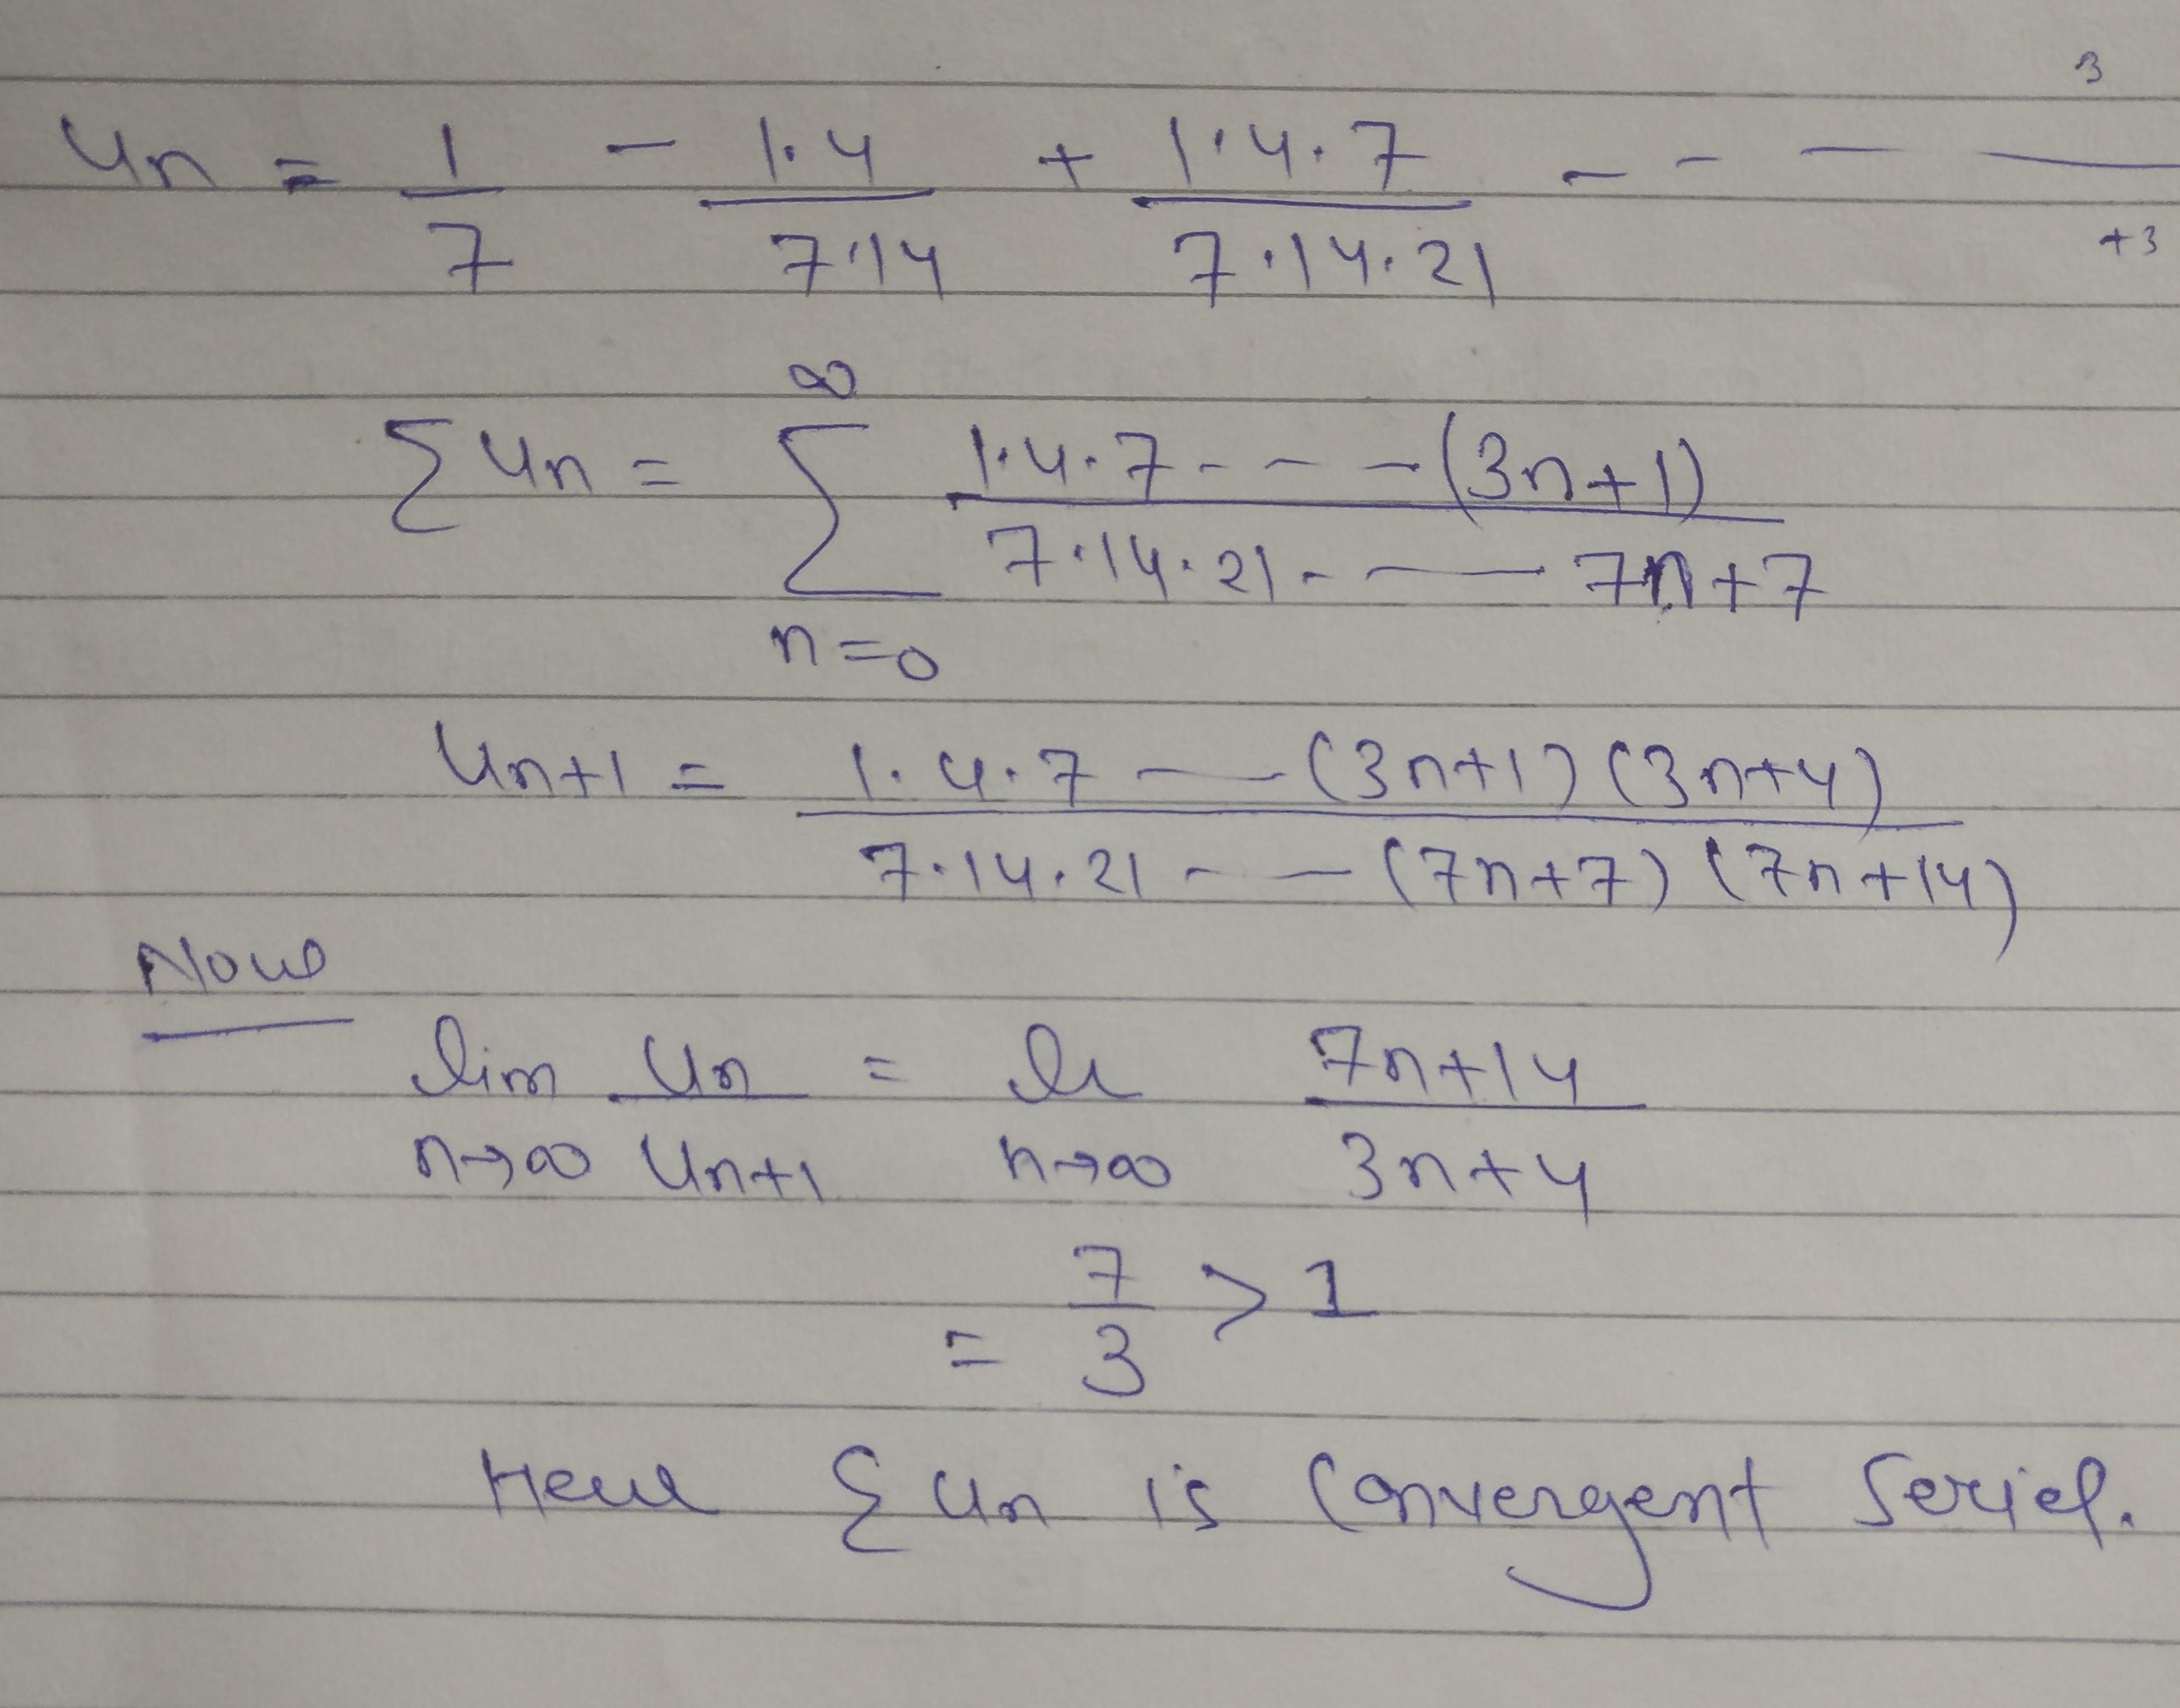 3
Un = 1/7 - 1·4/7·14 + 1·4·7/7·14·21 - - - -
+3
∑Un = ∑_{n=0}^{∞} 1·4·7- - - -(3n+1)/7·14·21- - 7n+7
Un+1 = 1·4·7 - - (3n+1)(3n+4)/7·14·21 - - (7n+7)(7n+14)
Now
lim_{n→∞} Un/Un+1 = lim_{n→∞} 7n+14/3n+4
= 7/3 > 1
∑Un is Convergent Series.